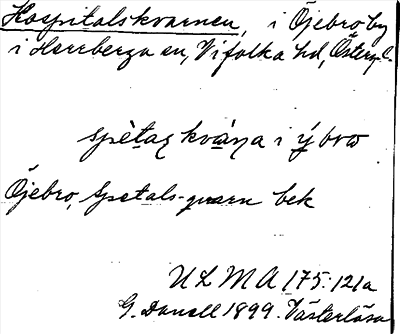 Hospitalskvarnen, i Öjebro by
i Herrberga sn, Vifolka hd, Österg. l.
spètaꞩ kváṇa i ý brω
Öjebro, Spetals-qvarn bek
ULMA 175:121a
G. Danell 1899. Västerlösa